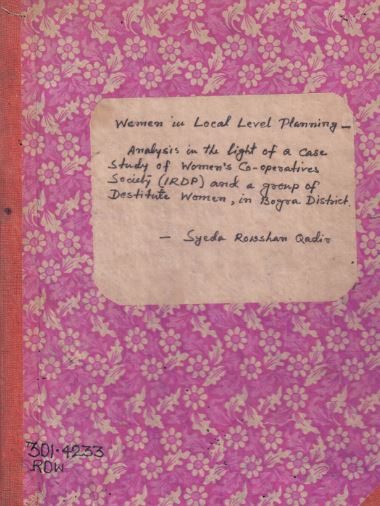 Women in Local Level Planning —
Analysis in the light of a case
Study of Women's Co-operatives
Society (IRDP) and a group of
Destitute Women, in Bogra District.
— Syeda Rowshan Qadir
301.4233
ROW